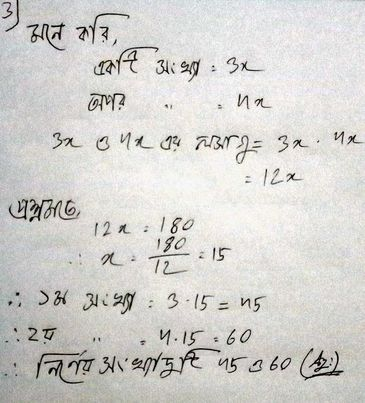 3)
মনে করি,
একটি সংখ্যা = 3x
অপর " = 4x
3x ও 4x এর লসাগু = 3x · 4x
= 12x
প্রশ্নমতে,
12x = 180
∴ x = 180/12 = 15
∴ ১ম সংখ্যা = 3·15 = 45
∴ ২য় " = 4·15 = 60
∴ নির্ণেয় সংখ্যাদুটি 45 ও 60 (উঃ)